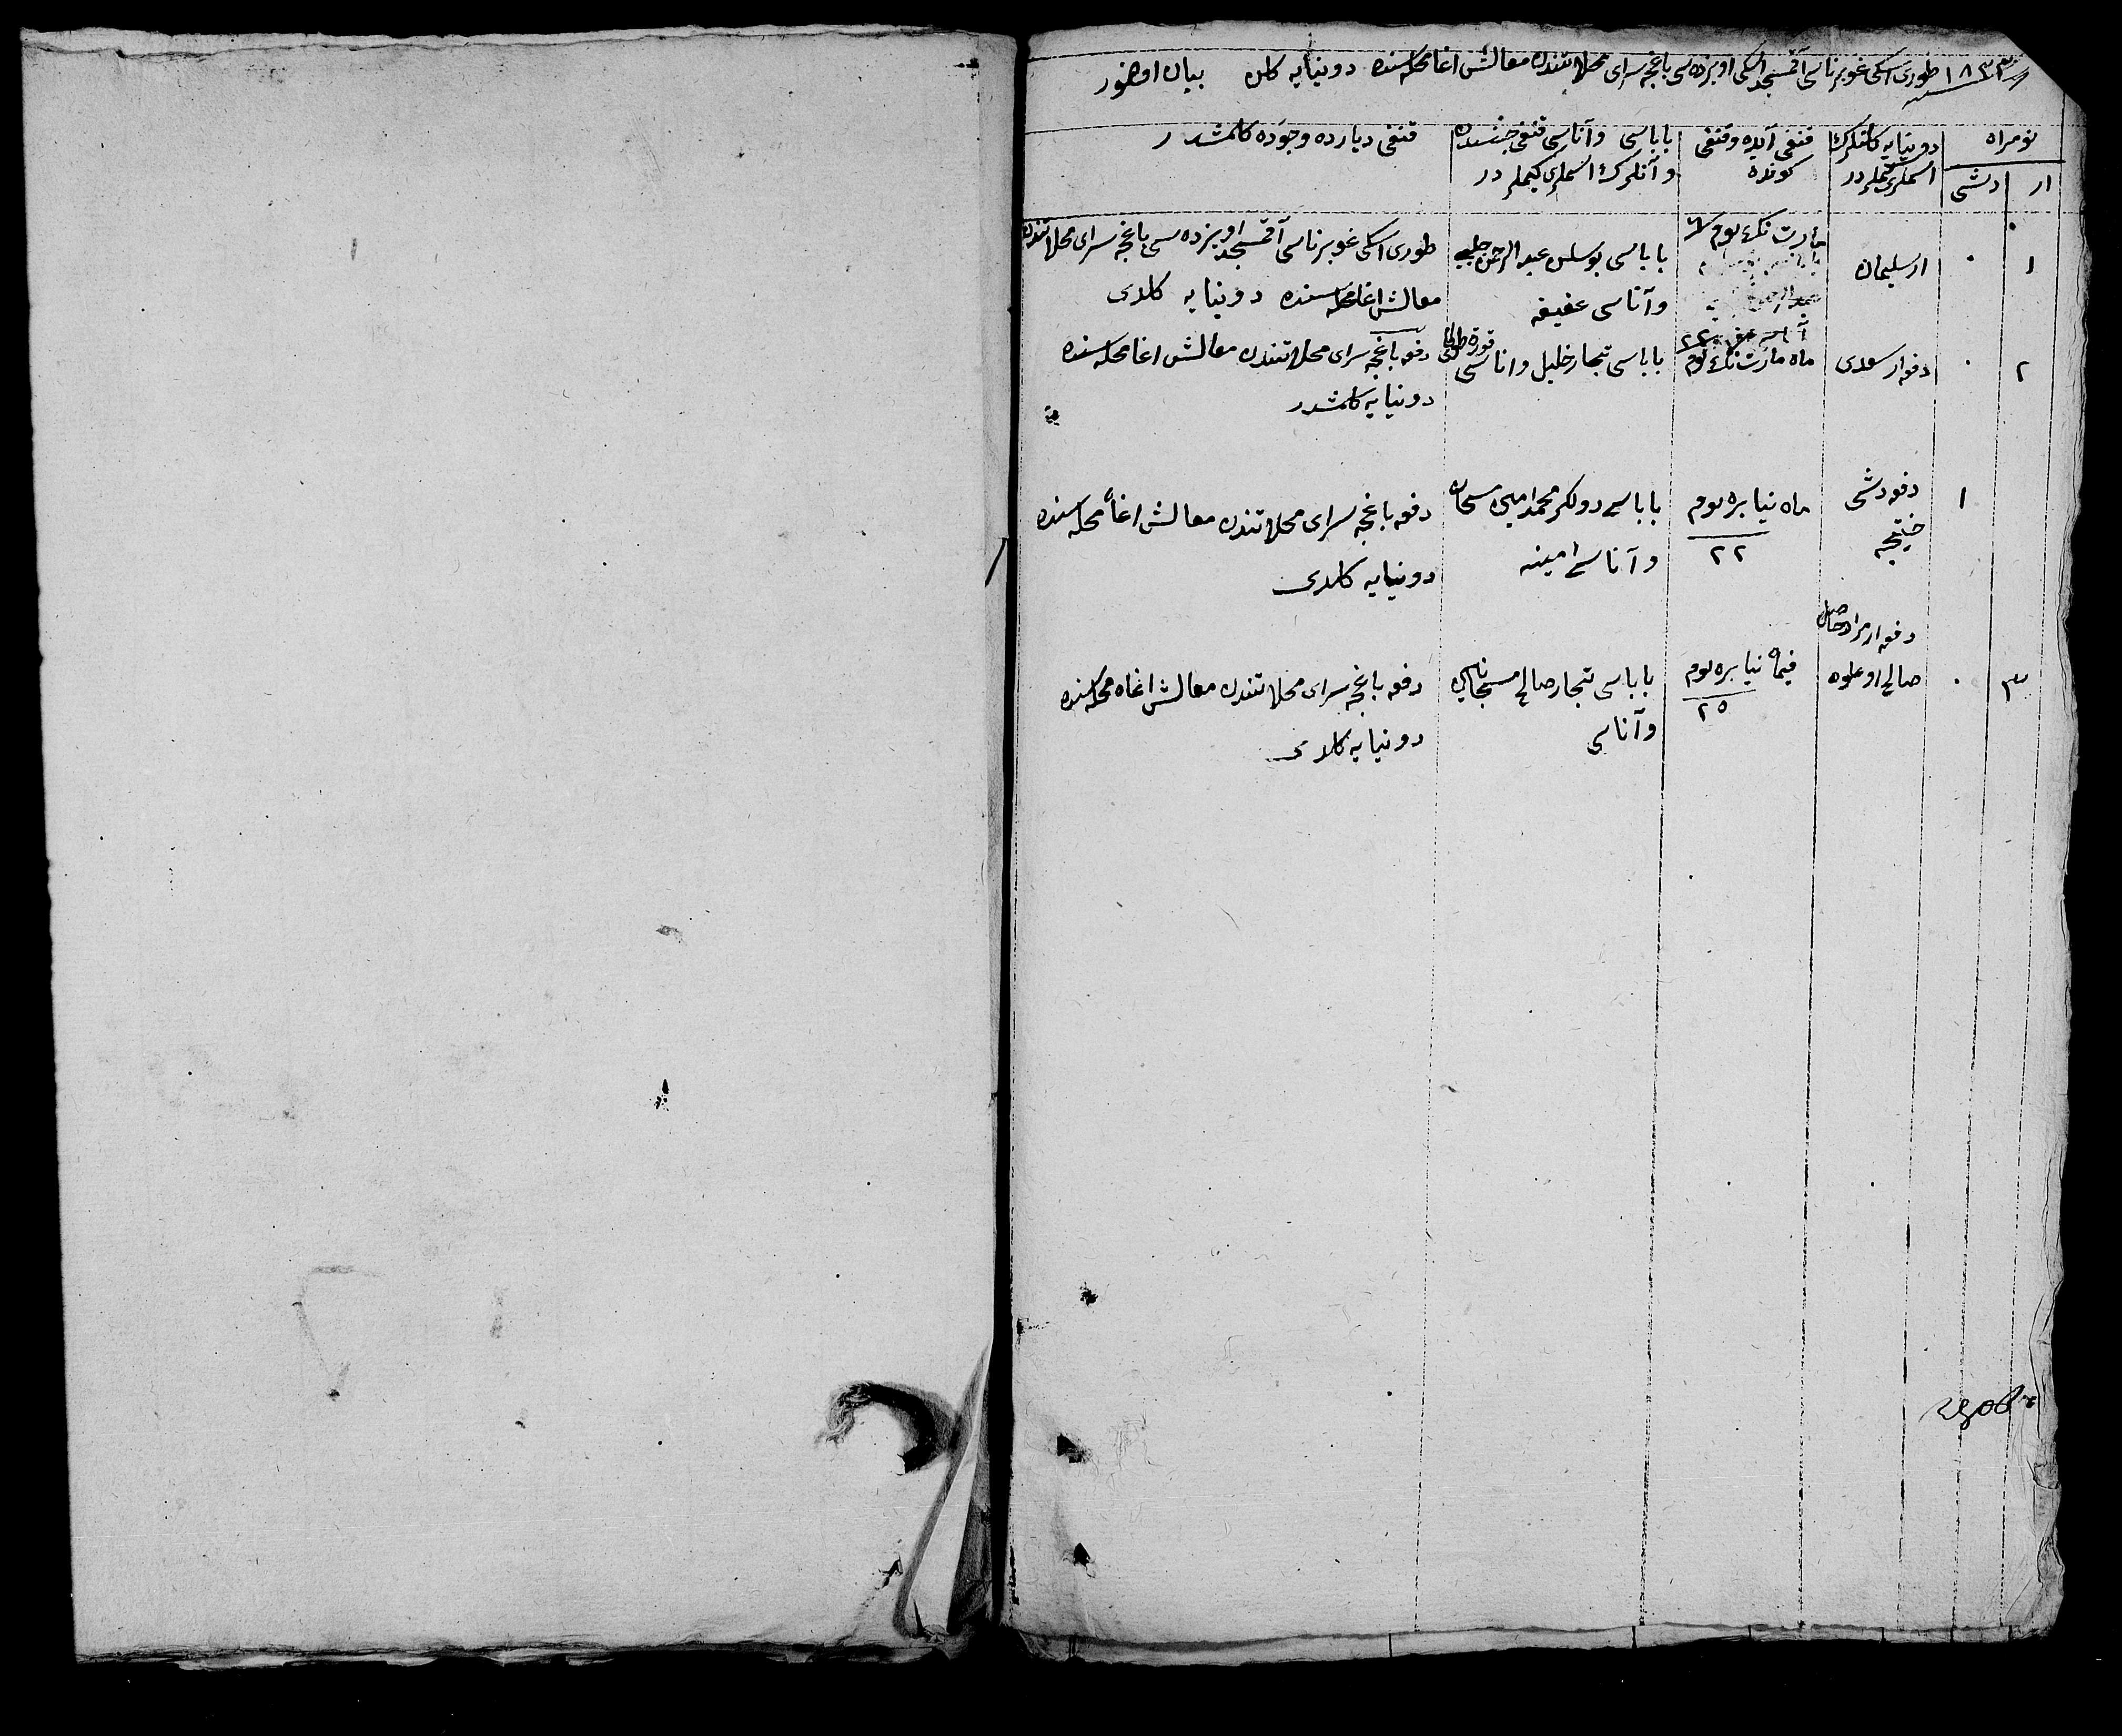 ١٨٣٣ طوری اسکی غوبرناسی آقمسجد اوبزده سی باغچه سرای محلاتندن معالش اغا محله سنده دونیایه کلن بیان اولنور
نومراه
ار
دشی
دونیایه کلنلرك اسملری کیملر در
قنغی آیده و قنغی کونده
باباسی و آناسی قنغی جنسدن
و آنلرك اسملری کیملر در
قنغی دیارده وجوده کلمشدر
١
٠
ار سلیمان
مارت نك یوم
باباسی عبد الرحمن چلبی
و آناسی عفیفه
طوری اسکی غوبرناسی آقمسجد اوبزده سی باغچه سرای محلاتندن
معالش اغا محله سنده دونیایه کلدی
٢
٠
دفعه ار سعدی
ماه مارت نك یوم ٢٢
باباسی تجار خلیل و اناسی
دفعه باغچه سرای محلاتندن معالش اغا محله سنده
دونیایه کلمشدر
١
دفعه دشی
خدیجه
ماه نیابره یوم
٢٢
باباسی دولکر محمد امین
و آناسی امینه
دفعه باغچه سرای محلاتندن معالش اغا محله سنده
دونیایه کلدی
٣
٠
دفعه ار مراد
صالح اوغلوه
نیابره یوم
٢٥
باباسی تجار صالح
و آناسی
دفعه باغچه سرای محلاتندن معالش اغاه محله سنده
دونیایه کلدی